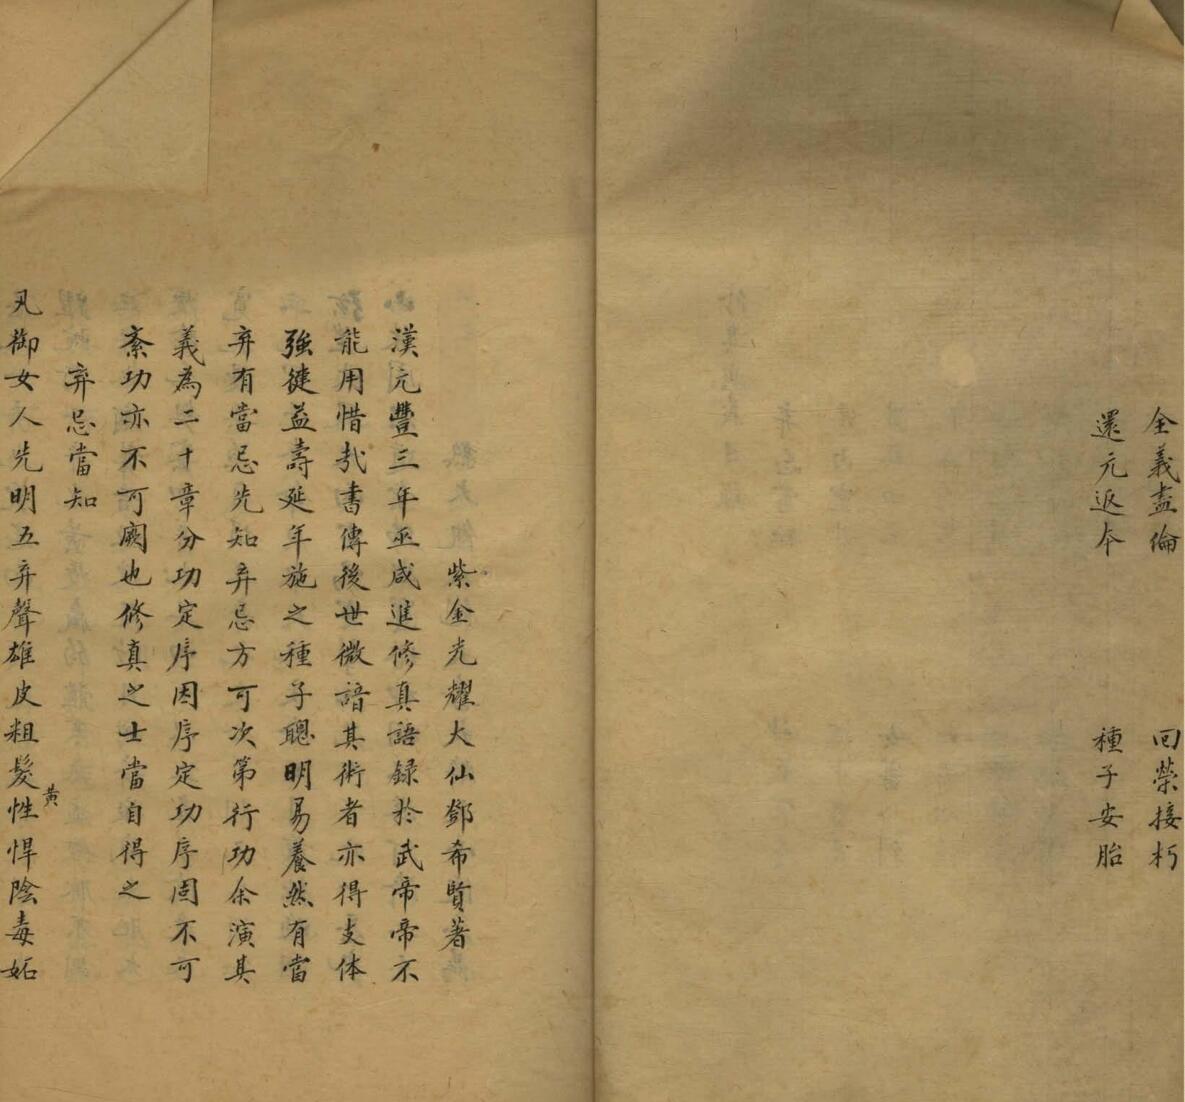 全義盡倫　回榮接朽
還元返夲　種子安胎
紫金光耀大仙鄧希賢著
漢元豐三年巫咸進修真語録於武帝帝不
能用惜㦲書傳後世微諳其術者亦得支体
強健益壽延年施之種子聰明易養然有當
弃有當忌先知弃忌方可次第行功余演其
義為二十章分功定序因序定功序固不可
紊功亦不可闕也修真之士當自得之
弃忌當知
凡御女人先明五弃聲雄皮粗髮黄性悍陰毒妬